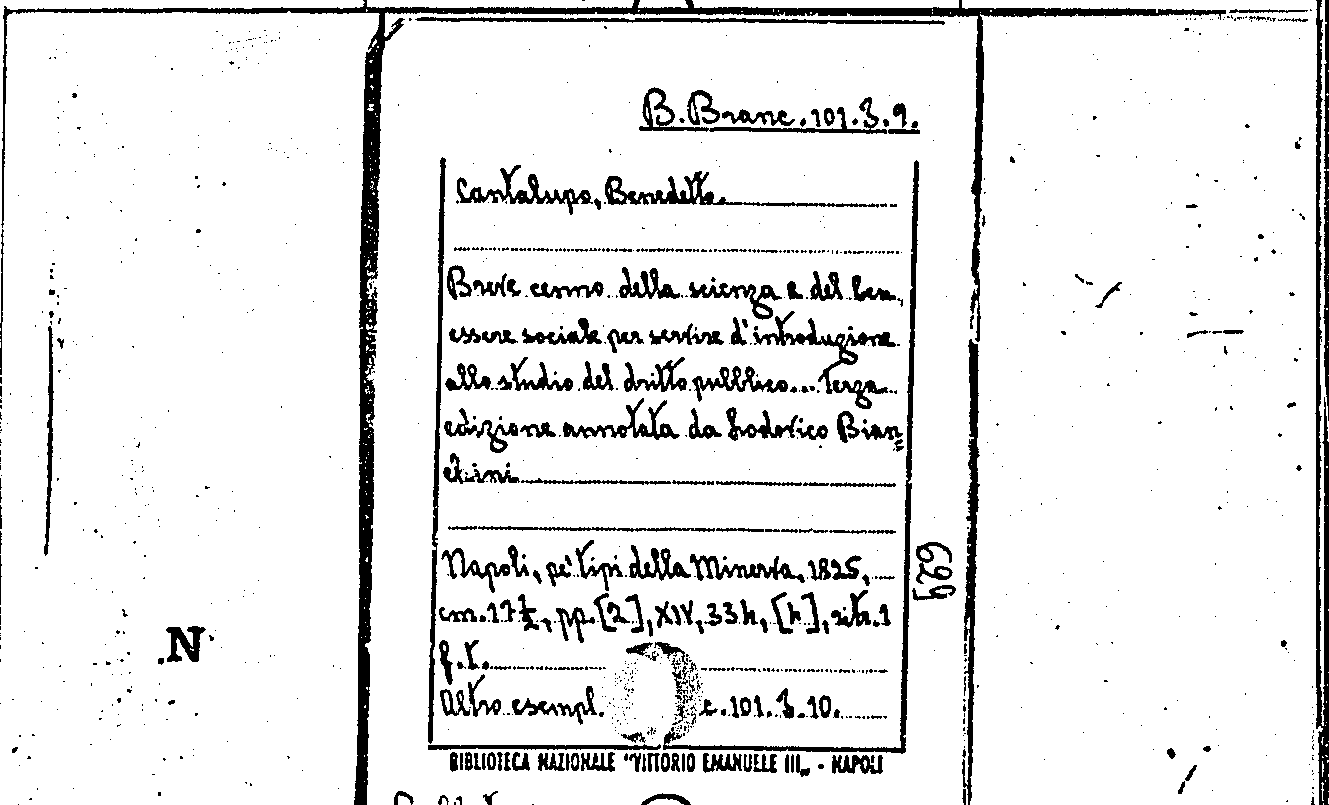 B. Branc. 101. 3. 9.
Cantalupo, Benedetto.
Breve cenno della scienza e del ben„
essere sociale per servire d'introduzione
allo studio del dritto pubblico... Terza
edizione annotata da Lodovico Bian„
chini
Napoli, pe' tipi della Minerva, 1825,
cm. 17½, pp. [2], XIV, 334, [4], ritr. 1
f. t.
Altro esempl. c. 101. 3. 10.
629
N
BIBLIOTECA NAZIONALE "VITTORIO EMANUELE III„ - NAPOLI